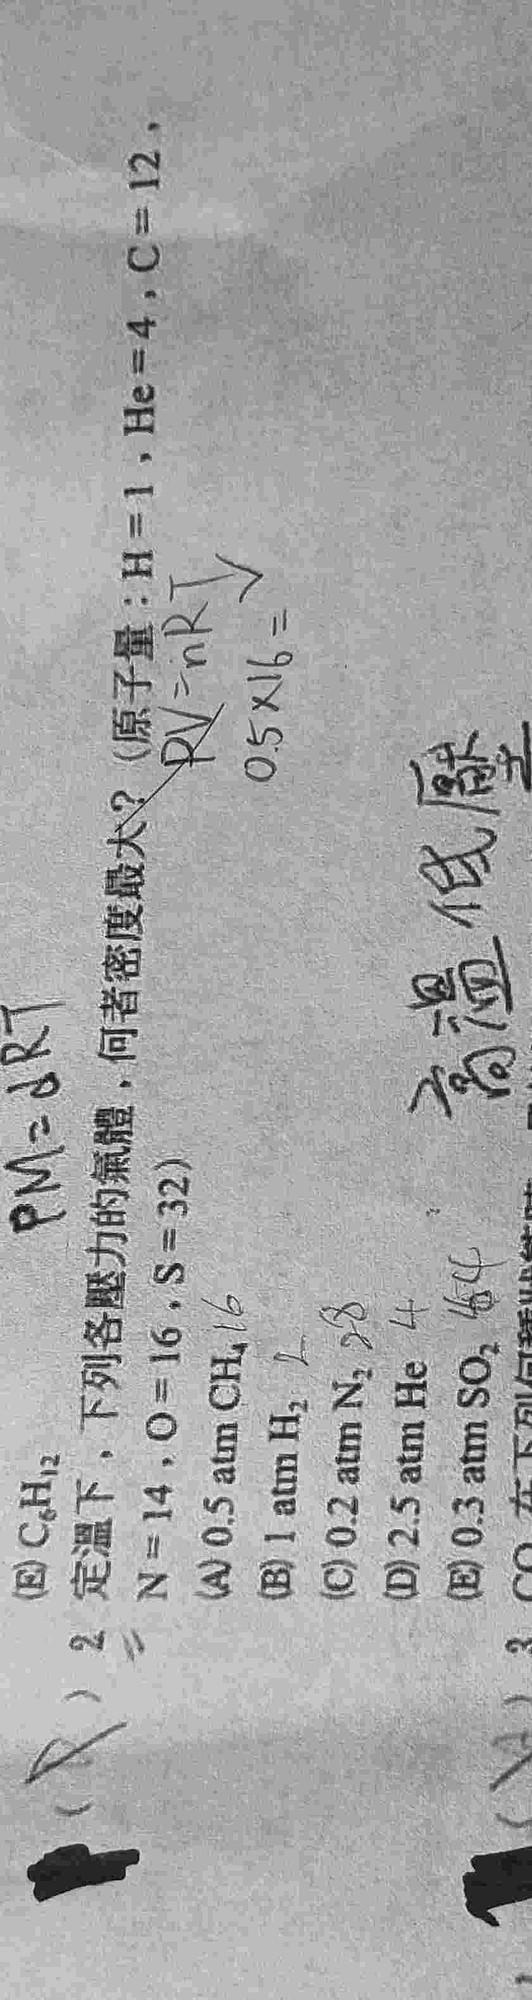 (E) C₆H₁₂
PM=dRT
2 定溫下，下列各壓力的氣體，何者密度最大？(原子量：H=1，He=4，C=12，
N=14，O=16，S=32)
PV=nRT
(A) 0.5 atm CH₄ 16
0.5×16=
(B) 1 atm H₂ 2
(C) 0.2 atm N₂ 28
(D) 2.5 atm He 4
(E) 0.3 atm SO₂ 64
高溫低壓
3